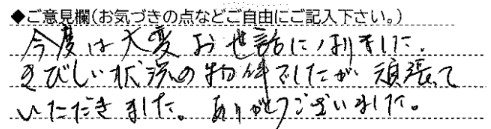 ◆ご意見欄(お気づきの点などご自由にご記入下さい。)
今度は大変お世話になりました。
きびしい状況の物件でしたが頑張って
いただきました。ありがとうございました。